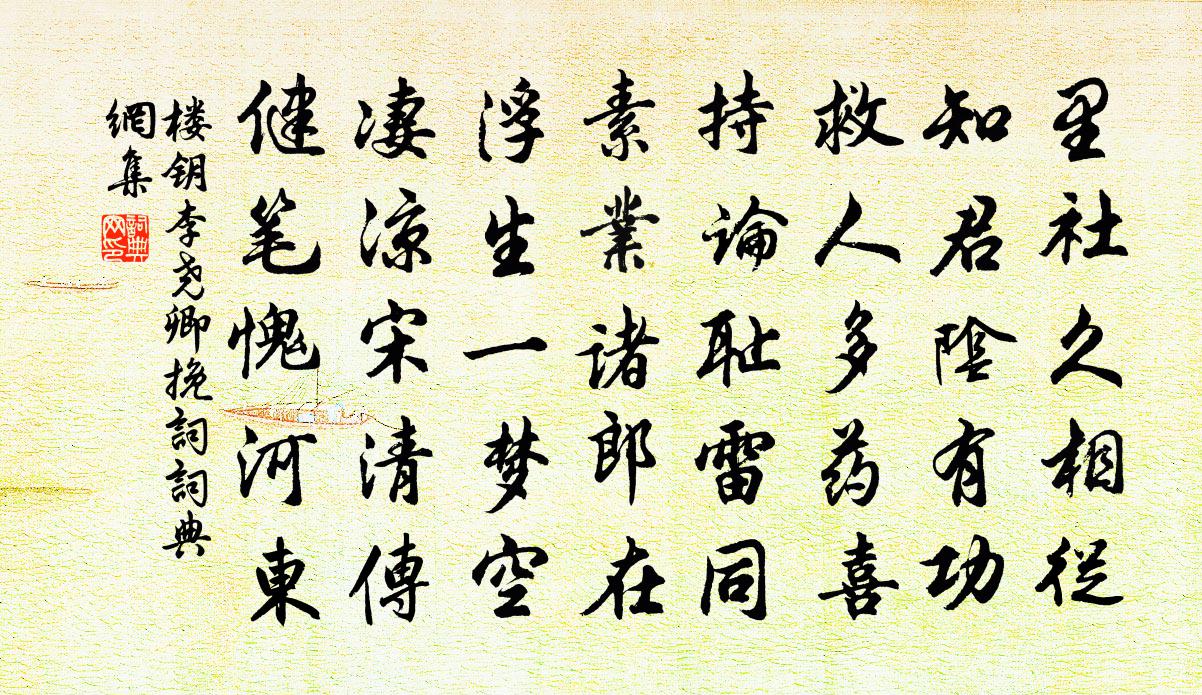 里社久相從
知君陰有功
救人多药喜
持論耻雷同
素業諸郎在
浮生一梦空
凄涼宋清傳
健笔愧河東
楼钥李尧卿挽詞詞典
網集
詞典
网印